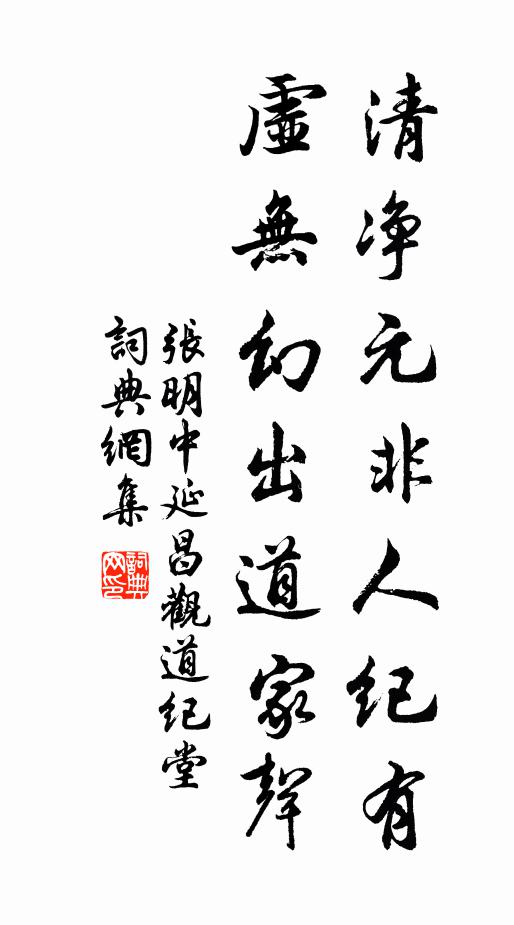 清净元非人纪有
虛無幻出道家聲
張明中延昌觀道紀堂
詞典網集
詞典網印